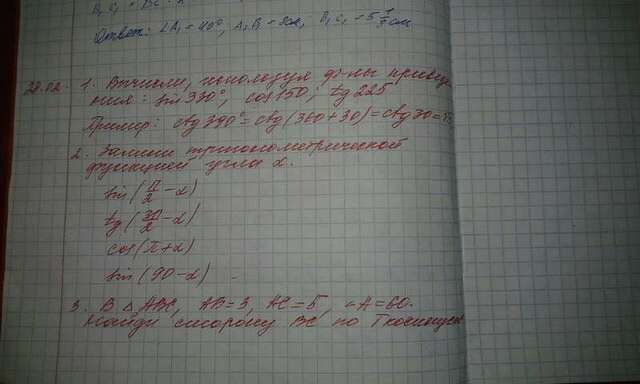 B₁C₁ = BC ·
Ответ: ∠A₁ = 40°, A₁B = 8см, B₁C₁ = 5 см
28.02. 1. Вычисли, используя ф-лы приведе
ния: sin 330°, cos 150; tg 225
Пример: ctg 390° = ctg (360 + 30) = ctg 30 =
2. Запиши тригонометрической
функцией угла α.
sin (π/2 - α)
tg (3π/2 - α)
cos (π + α)
sin (90 - α)
3. В △ ABC, AB = 3, AC = 5, ∠A = 60.
Найди сторону BC по Т косинусов